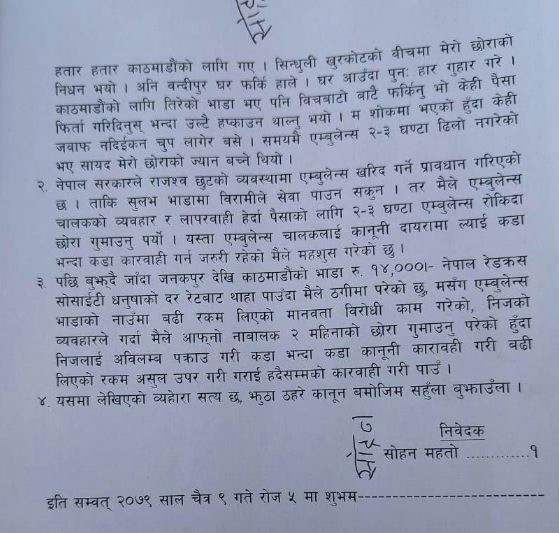 हतार हतार काठमाडौंको लागि गए । सिन्धुली खुरकोटको वीचमा मेरो छोराको
निधन भयो । अनि बन्दीपुर घर फर्कि हाले । घर आउँदा पुनः हार गुहार गरे ।
काठमाडौंको लागि तिरेको भाडा भए पनि विचबाटो बाटै फर्किनु भो केही पैसा
फिर्ता गरिदिनुस् भन्दा उल्टै हप्काउन थाल्नु भयो । म शोकमा भएको हुँदा केही
जवाफ नदिईकन चुप लागेर बसे । समयमै एम्बुलेन्स २-३ घण्टा ढिलो नगरेको
भए सायद मेरो छोराको ज्यान बच्ने थियो ।
२. नेपाल सरकारले राजश्व छुटको व्यवस्थामा एम्बुलेन्स खरिद गर्ने प्रावधान गरिएको
छ । ताकि सुलभ भाडामा विरामीले सेवा पाउन सकुन । तर मैले एम्बुलेन्स
चालकको व्यवहार र लापरवाही हेर्दा पैसाको लागि २-३ घण्टा एम्बुलेन्स रोकिदा
छोरा गुमाउनु पर्यो । यस्ता एम्बुलेन्स चालकलाई कानूनी दायरामा ल्याई कडा
भन्दा कडा कारवाही गर्न जरुरी रहेको मैले महशुस गरेको छु ।
३. पछि बुझ्दै जाँदा जनकपुर देखि काठमाडौंको भाडा रु. १४,०००।- नेपाल रेडक्रस
सोसाईटी धनुषाको दर रेटबाट थाहा पाउँदा मैले ठगीमा परेको छु, मसँग एम्बुलेन्स
भाडाको नाउँमा बढी रकम लिएको मानवता विरोधी काम गरेको, निजको
व्यवहारले गर्दा मैले आफ्नो नाबालक २ महिनाको छोरा गुमाउनु परेको हुँदा
निजलाई अविलम्ब पक्राउ गरी कडा भन्दा कडा कानूनी कारावही गरी बढी
लिएको रकम असुल उपर गरी गराई हदैसम्मको कारवाही गरी पाउँ ।
४. यसमा लेखिएको व्यहोरा सत्य छ, झुठा ठहरे कानून बमोजिम सहुँला बुझाउँला ।
निवेदक
सोहन महतो .............१
इति सम्वत् २०७९ साल चैत्र ९ गते रोज ५ मा शुभम---------------------------